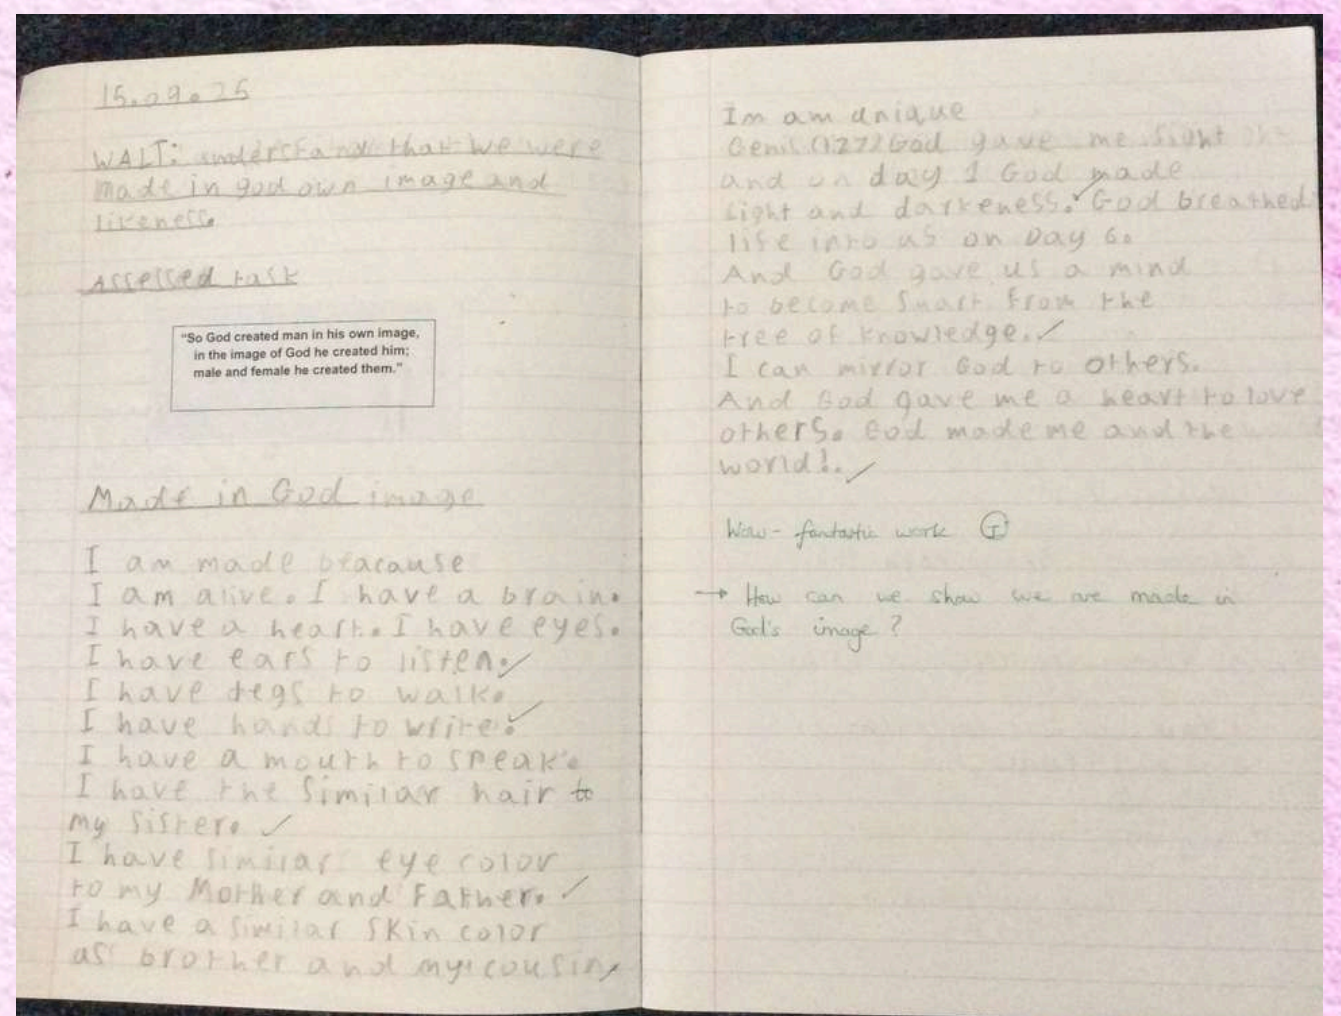 15.09.25
WALT: understand that we were
made in god own image and
likeness
Assessed task
"So God created man in his own image,
in the image of God he created him;
male and female he created them."
Made in God image
I am made beacause
I am alive. I have a brain.
I have a heart. I have eyes.
I have ears to listen.
I have legs to walk.
I have hands to write.
I have a mouth to speak.
I have the similar hair to
my sister.
I have similar eye color
to my Mother and Father.
I have a similar skin color
as brother and my cousin,
Im am unique
God gave me sight
and on day 1 God made
Light and darkeness. God breathed
life into us on Day 6.
And God gave us a mind
to become smart from the
tree of knowledge.
I can mirror God to others.
And God gave me a heart to love
others. God made me and the
world!.
Wow - fantastic work
→ How can we show we are made in
God's image?